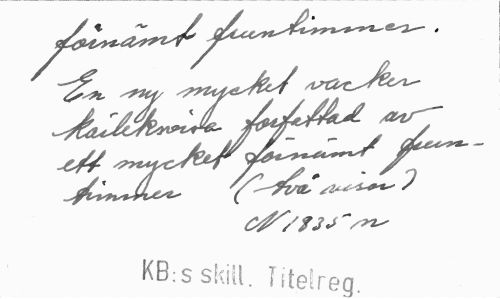 förnämt fruntimmer.
En ny mycket vacker
kärleksvisa författad av
ett mycket förnämt frun-
timmer (två visor)
N 1835 n
KB:s skill. Titelreg.